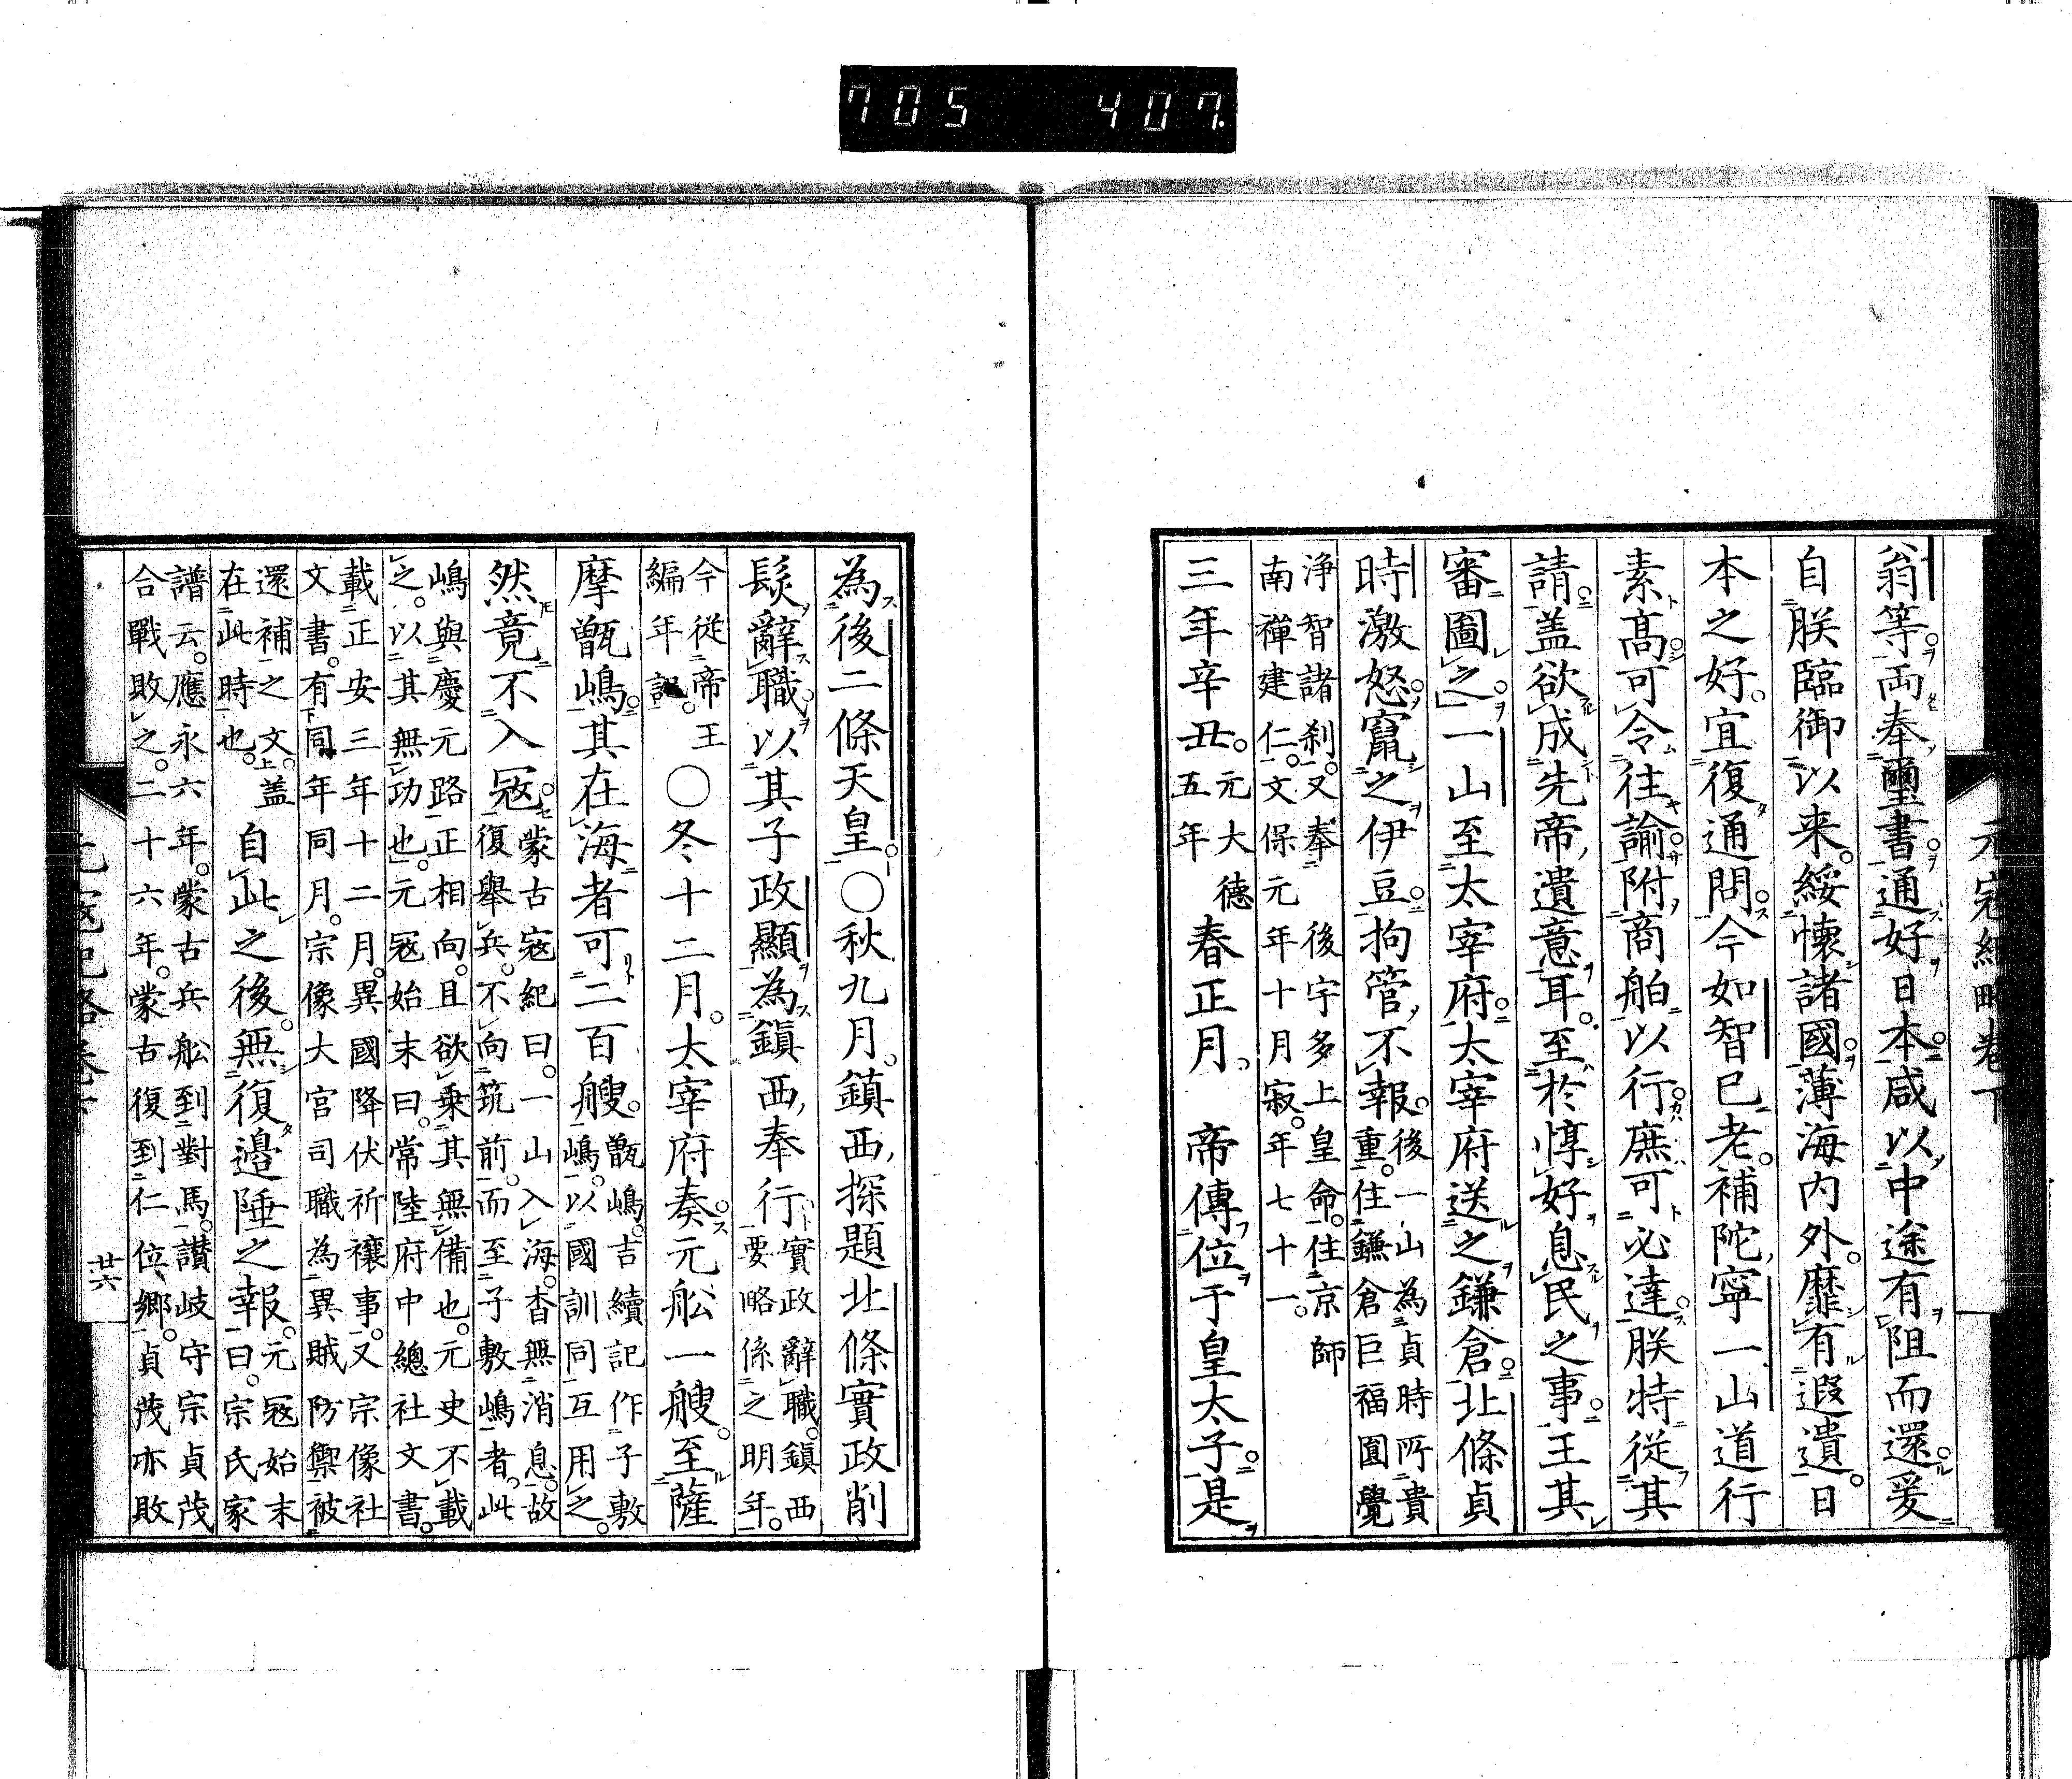 705 407.
元寇紀略巻下
翁等両奉璽書通好日本咸以中途有阻而還爰
自朕臨御以来綏懐諸國薄海内外靡有遐遺日
本之好宜復通問今如智已老補陀寧一山道行
素髙可令往諭附商舶以行庶可必達朕特従其
請盖欲成先帝遺意耳至於惇好息民之事王其
審圖之一山至太宰府太宰府送之鎌倉北條貞
時激怒竄之伊豆拘管不報後一山為貞時所貴
重住鎌倉巨福圓覺
浄智諸刹又奉後宇多上皇命住京師
南禪建仁文保元年十月寂年七十一
三年辛丑元大德
五年春正月帝傳位于皇太子是
為後二條天皇○秋九月鎮西探題北條實政削
髮辭職以其子政顯為鎮西奉行實政辭職鎮西
要略係之明年
今從帝王
編年記○冬十二月太宰府奏元舩一艘至薩
摩甑嶋其在海者可二百艘甑嶋吉續記作子敷
嶋以國訓同互用之
然竟不入寇蒙古寇紀曰一山入海杳無消息故
復舉兵不向筑前而至子敷嶋者此
嶋與慶元路正相向且欲乗其無備也元史不載
之以其無功也元寇始末曰常陸府中總社文書
載正安三年十二月異國降伏祈禳事又宗像社
文書有下同年同月宗像大宮司職為異賊防禦被
還補之文上盖
在此時也自此之後無復邊陲之報元寇始末
曰宗氏家
譜云應永六年蒙古兵舩到對馬讃岐守宗貞茂
合戰敗之二十六年蒙古復到仁位郷貞茂亦敗
廿六